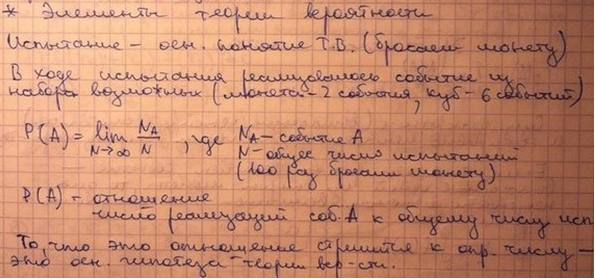 * Элементы теории вероятности
Испытание – осн. понятие Т.В. (бросаем монету)
В ходе испытания реализовалось событие из
набора возможных (монета - 2 события, куб - 6 событий)
P(A) = lim N→∞ NA/N , где NA – событие A
N – общее число испытаний
(100 раз бросали монету)
P(A) – отношение
число реализаций соб. A к общему числу исп
То, что это отношение стремится к опр. числу –
это осн. гипотеза теории вер-сти.